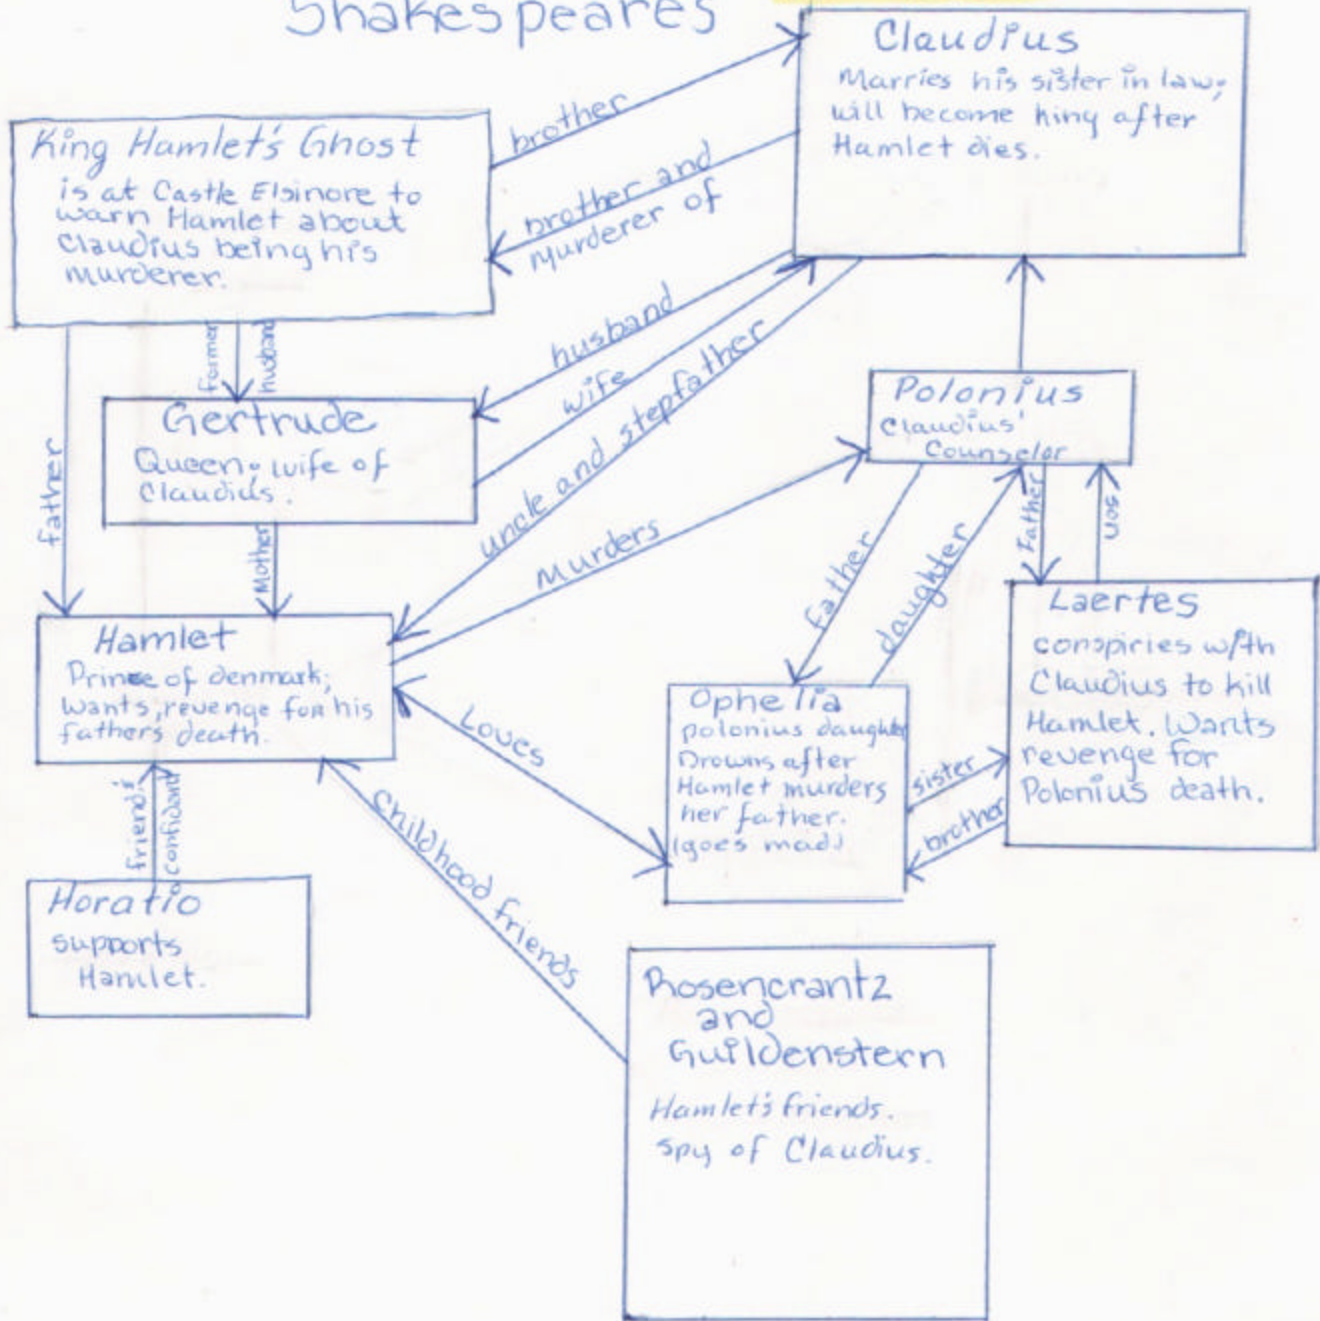 Shakespeares
Claudius
Marries his sister in law;
will become king after
Hamlet dies.
King Hamlet's Ghost
is at Castle Elsinore to
warn Hamlet about
Claudius being his
murderer.
brother
brother and
Murderer of
husband
wife
uncle and stepfather
Murders
Former
husband
father
Gertrude
Queen; wife of
Claudius.
Mother
Polonius
Claudius'
Counselor
Father
daughter
Father
son
Hamlet
Prince of denmark;
wants, revenge for his
father's death.
Loves
Ophelia
polonius daughter
Drowns after
Hamlet murders
her father.
(goes mad)
sister
brother
Laertes
conspiries w/th
Claudius to kill
Hamlet. Wants
revenge for
Polonius death.
friend &
confidant
Horatio
supports
Hamlet.
childhood friends
Rosencrantz
and
Guildenstern
Hamlet's friends.
spy of Claudius.